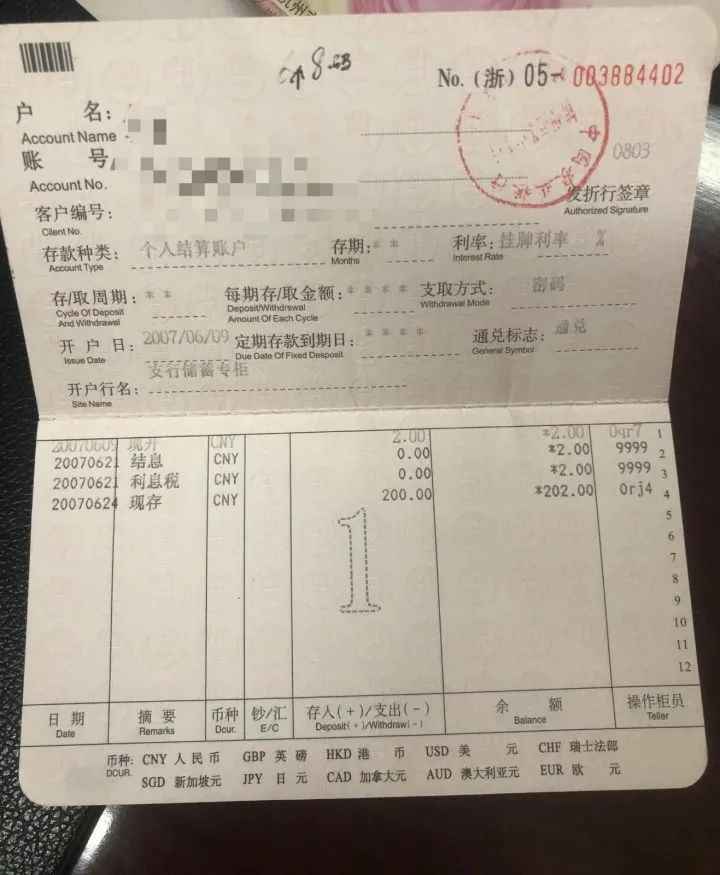 No. (浙) 05- 003884402
户 名:
Account Name
账 号
Account No.
0803
发折行签章
Authorized Signature
客户编号:
Cilent No.
存款种类: 个人结算账户 存期: * * 利率: 挂牌利率 %
Account Type Months Interest Rate
存/取周期: * * 每期存/取金额: * * * * 支取方式: 密码
Cycle Of Deposit And Withdrawal Deposit/Withdrswal Amount Of Each Cycle Withdrawal Mode
开 户 日: 2007/06/09 定期存款到期日: * * * * 通兑标志: 通兑
Issue Date Due Date Of Fixed Deposit General Symbol
开户行名: 支行储蓄专柜
Site Name
20070609 现开 CNY 2.00 *2.00 0qr7 1
20070621 结息 CNY 0.00 *2.00 9999 2
20070621 利息税 CNY 0.00 *2.00 9999 3
20070624 现存 CNY 200.00 *202.00 0rj4 4
5
6
7
8
9
10
11
12
1
日 期 摘 要 币种 钞/汇 存入(+)/支出(-) 余 额 操作柜员
Date Remarks Dcur. E/C Deposit(+)/Withdraw(-) Balance Teller
币种: CNY 人民币 GBP 英 磅 HKD 港 币 USD 美 元 CHF 瑞士法郎
DCUR. SGD 新加坡元 JPY 日 元 CAD 加拿大元 AUD 澳大利亚元 EUR 欧 元